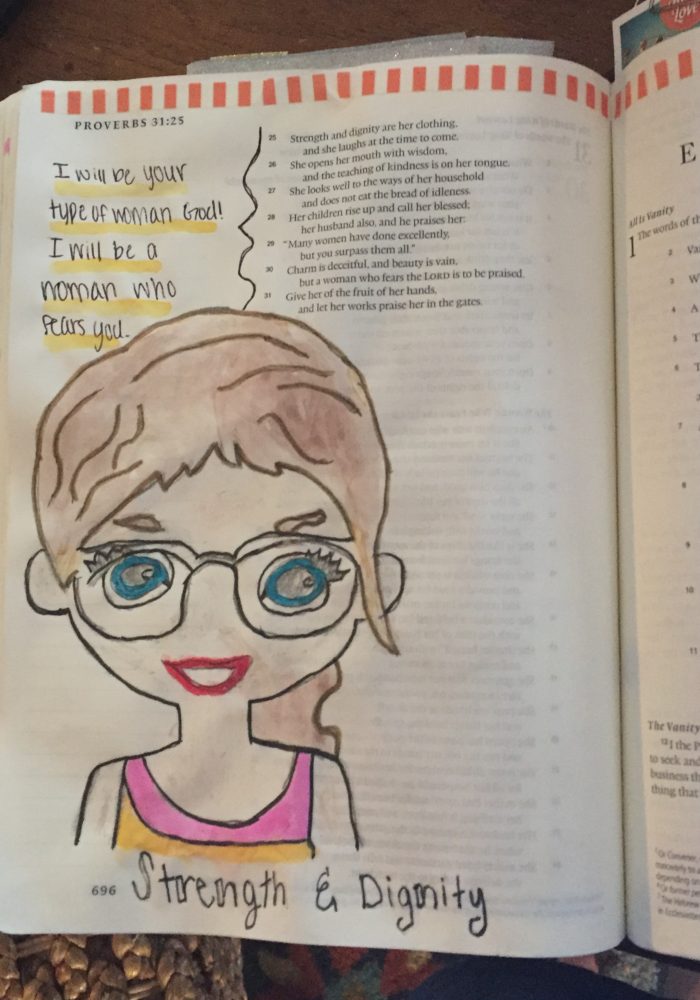 LOVE
PROVERBS 31:25
I will be your
type of woman God!
I will be a
woman who
fears you.
25 Strength and dignity are her clothing,
and she laughs at the time to come.
26 She opens her mouth with wisdom,
and the teaching of kindness is on her tongue.
27 She looks well to the ways of her household
and does not eat the bread of idleness.
28 Her children rise up and call her blessed;
her husband also, and he praises her:
29 “Many women have done excellently,
but you surpass them all.”
30 Charm is deceitful, and beauty is vain,
but a woman who fears the LORD is to be praised.
31 Give her of the fruit of her hands,
and let her works praise her in the gates.
696 Strength & Dignity
E
All Is Vanity
1 The words of th
2 Va
3 W
4 A
5 T
6 T
7
8
9
10
11
The Vanity
12 I the P
to seek and
business th
thing that